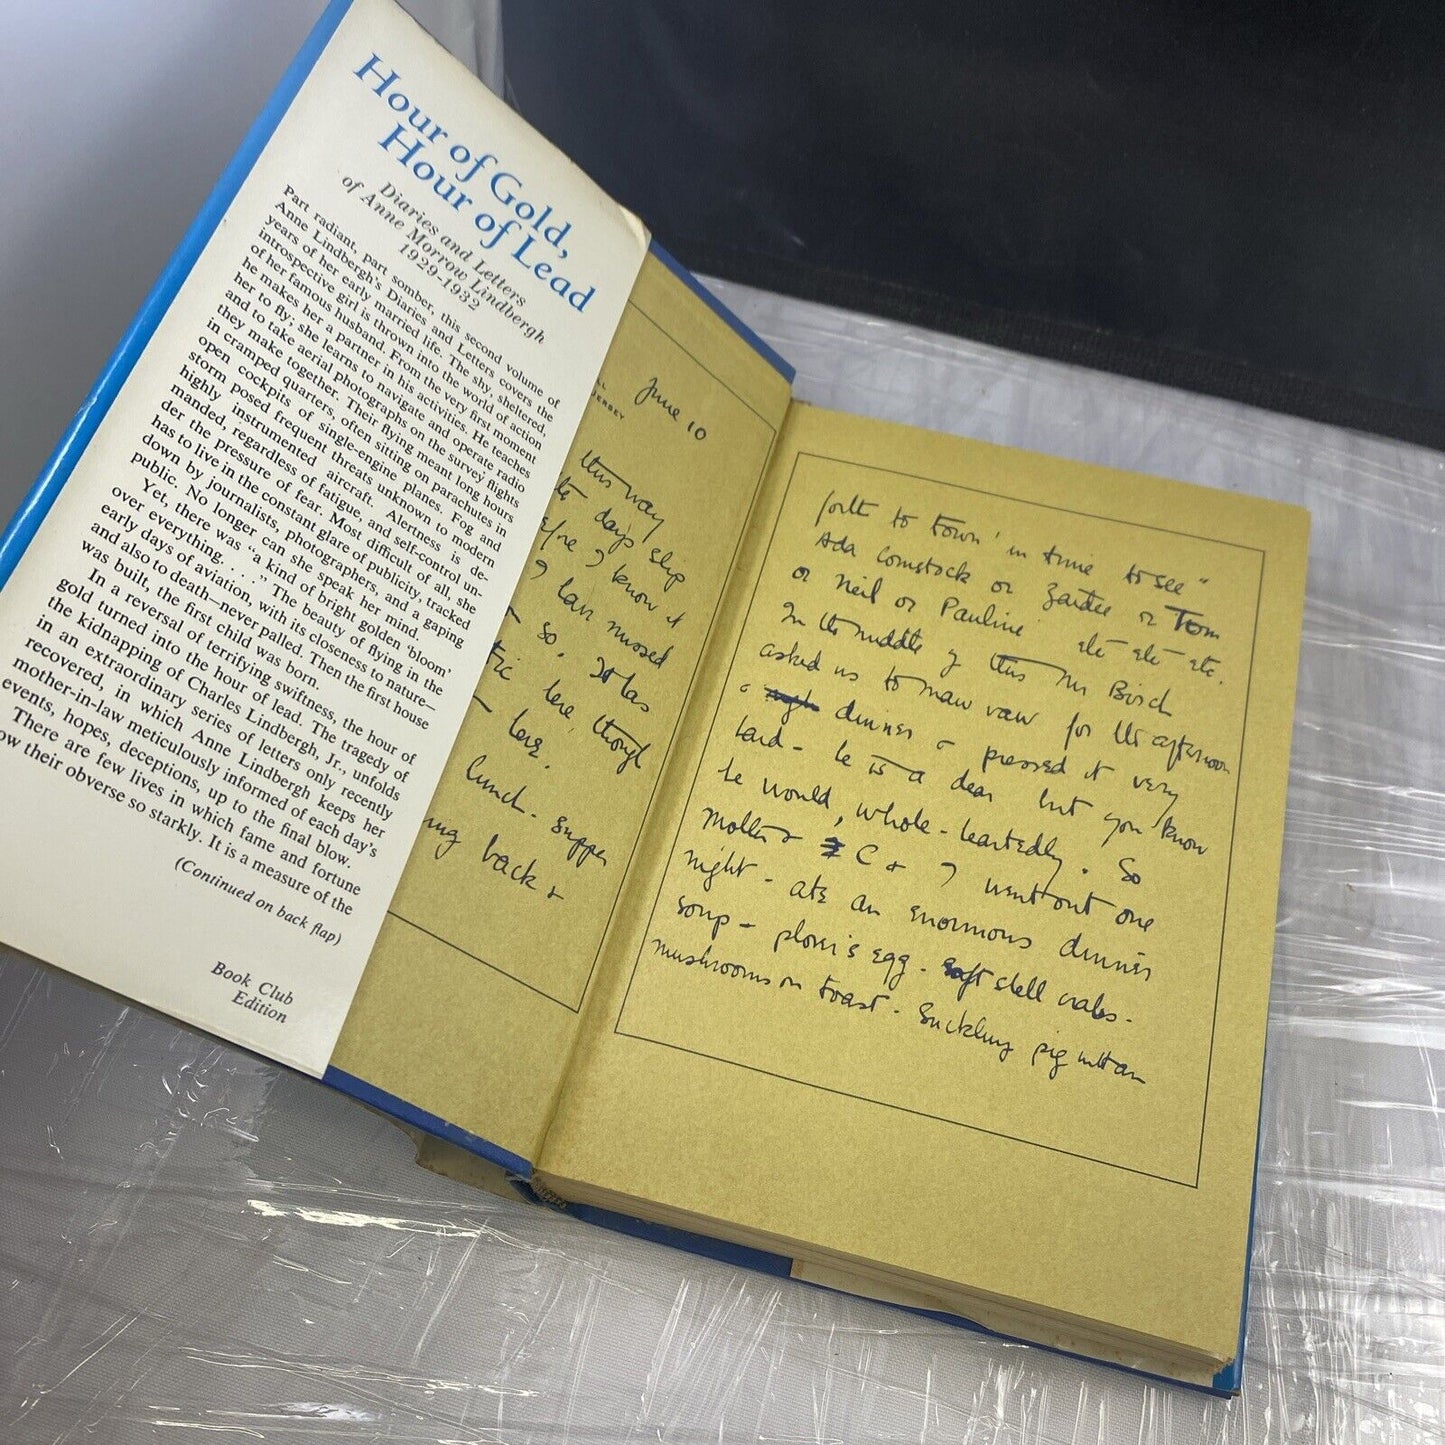 Hour of Gold,
Hour of Lead
Diaries and Letters
of Anne Morrow Lindbergh
1929-1932
Part radiant, part somber, this second volume of
Anne Lindbergh's Diaries and Letters covers the
years of her early married life. The shy, sheltered,
introspective girl is thrown into the world of action
of her famous husband. From the very first moment
he makes her a partner in his activities. He teaches
her to fly; she learns to navigate and operate radio
and to take aerial photographs on the survey flights
they make together. Their flying meant long hours
in cramped quarters, often sitting on parachutes in
open cockpits of single-engine planes. Fog and
storm posed frequent threats unknown to modern
highly instrumented aircraft. Alertness is de-
manded, regardless of fatigue, and self-control un-
der the pressure of fear. Most difficult of all, she
has to live in the constant glare of publicity, tracked
down by journalists, photographers, and a gaping
public. No longer can she speak her mind.
Yet, there was "a kind of bright golden 'bloom'
over everything. . . ." The beauty of flying in the
early days of aviation, with its closeness to nature—
and also to death—never palled. Then the first house
was built, the first child was born.
In a reversal of terrifying swiftness, the hour of
gold turned into the hour of lead. The tragedy of
the kidnapping of Charles Lindbergh, Jr., unfolds
in an extraordinary series of letters only recently
recovered, in which Anne Lindbergh keeps her
mother-in-law meticulously informed of each day's
events, hopes, deceptions, up to the final blow.
There are few lives in which fame and fortune
ow their obverse so starkly. It is a measure of the
(Continued on back flap)
Book Club
Edition
ERSEY
June 10
this way
days slip
I know it
I have missed
so. It has
here, though
here.
lunch - supper
back +
forth to town 'in time to see"
Ada Comstock or Zaidee or Tom
or Neil or Pauline etc etc etc.
In the middle of this Mr Birch
asked us to naw vaw for the afternoon
dinner & pressed it very
hard - he is a dear but you know
he would, whole-heartedly. So
Mother & C + I went out one
night - ate an enormous dinner
soup - plover's egg - soft shell crabs -
mushrooms on toast - suckling pig with an